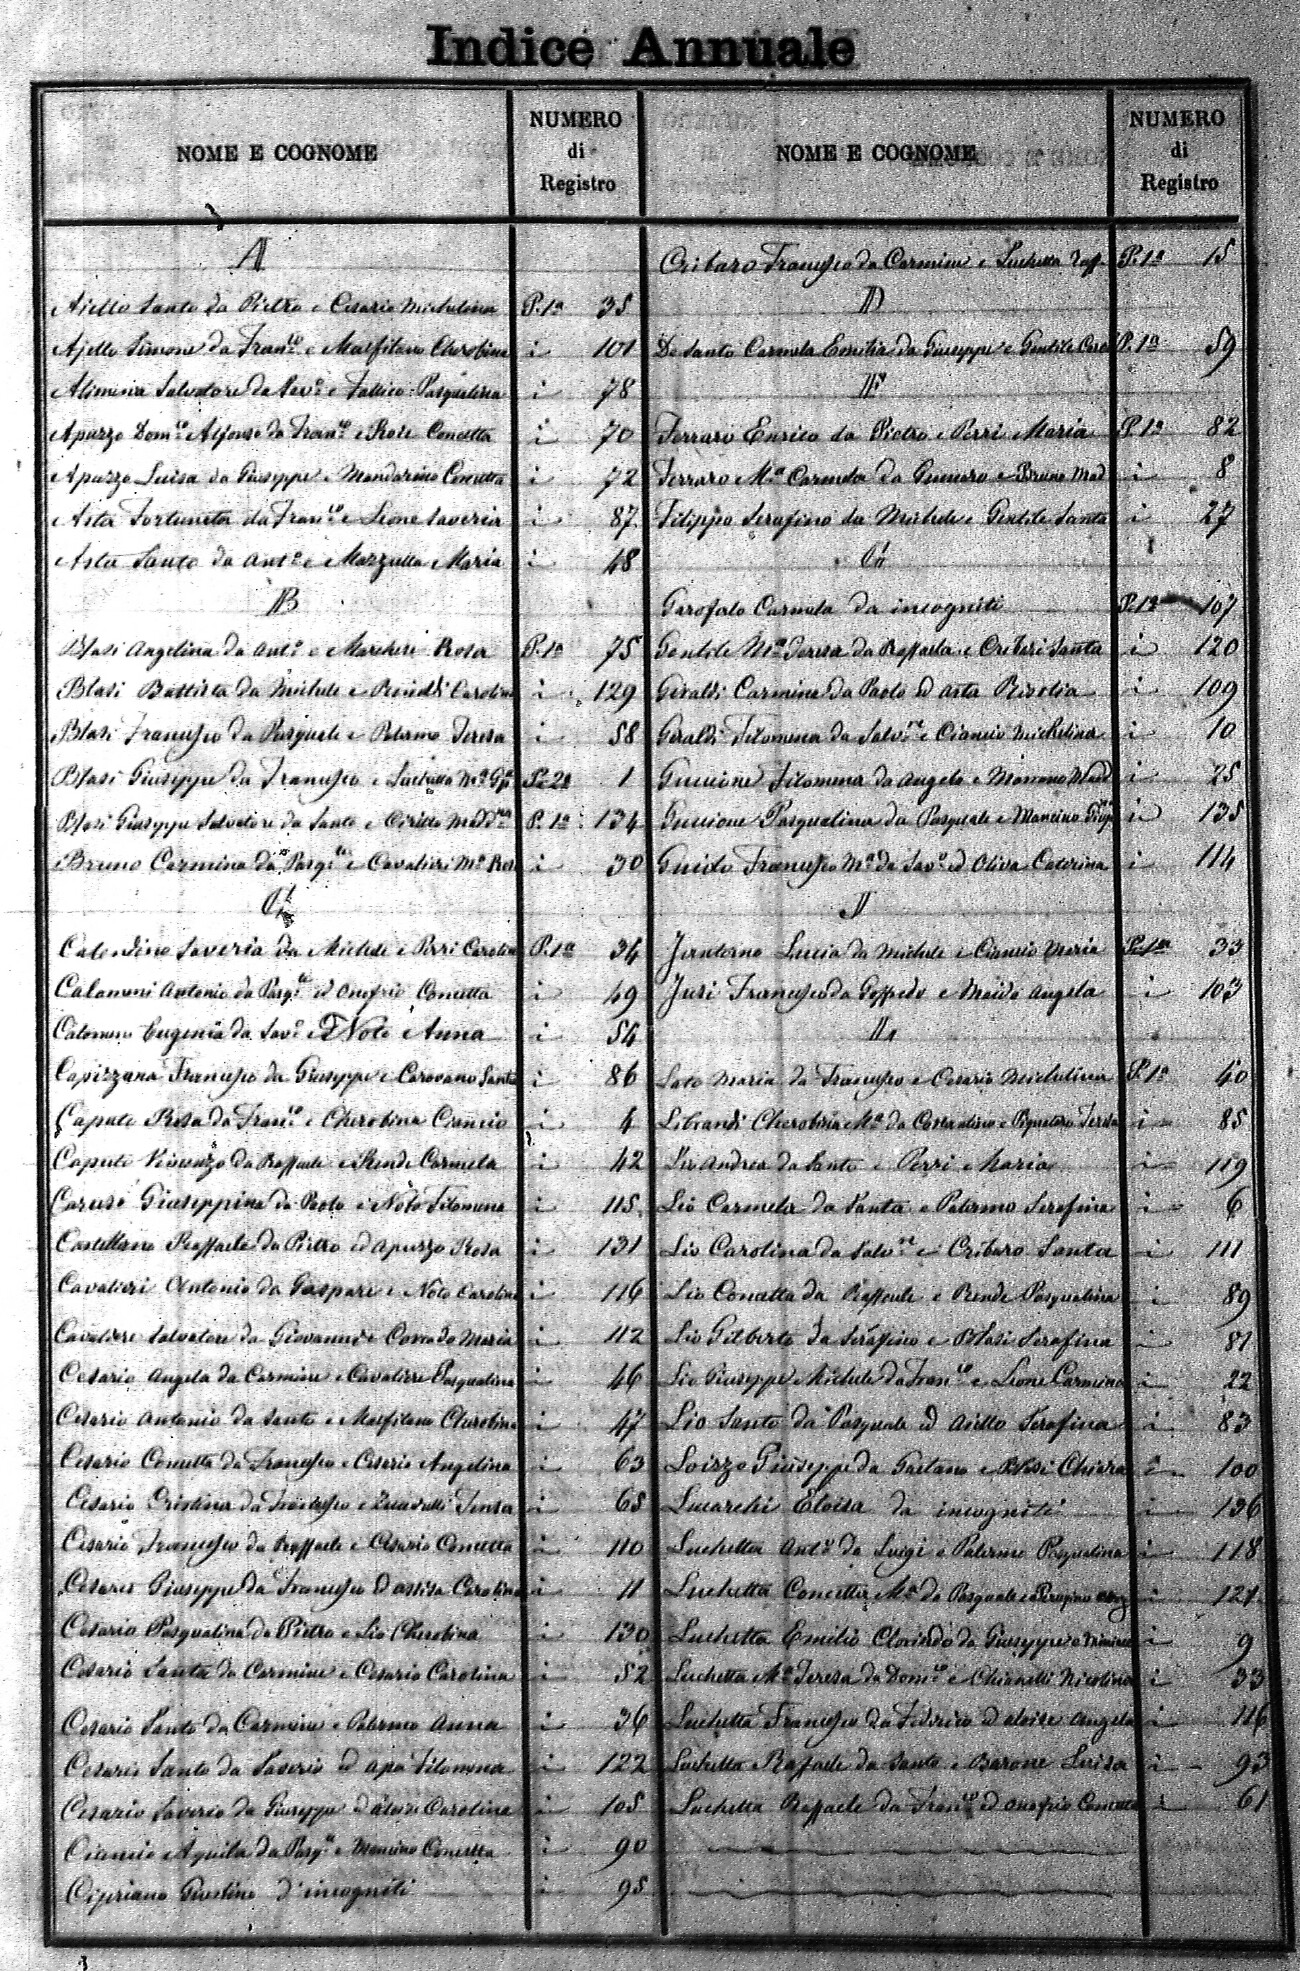 Indice Annuale
NOME E COGNOME
NUMERO
di
Registro
NOME E COGNOME
NUMERO
di
Registro
A
Ajello Santo da Pietro e Cesario Michelina P. 1a 35
Ajello Simone da Franco e Malfitano Cherobina i 101
Alimena Salvatore da Savo e Pasqualina i 78
Apuzzo Domco Alfonso da Franco e Rose Concetta i 70
Apuzzo Luisa da Giuseppe e Mandarino Concetta i 72
Asta Fortunata da Franco e Leone Saveria i 87
Asta Santo da Anto e Mazzulla Maria i 48
B
Blasi Angelina da Anto e Marchese Rosa P. 1a 75
Blasi Battista da Michele e Carolina i 129
Blasi Francesco da Pasquale e Palermo Teresa i 58
Blasi Giuseppe da Francesco e Luchetta Ma Gpa Pe 2a 1
Blasi Giuseppe Salvatore da Santo e Madd.na P. 1a 134
Bruno Carmina da Pasqle e Cavalieri Ma Rosa i 30
C
Calendino Saveria da Michele e Perri Carolina P. 1a 34
Calomeni Antonio da Pasqle ed Onofrio Concetta i 49
Calomeni Eugenia da Savo e Noto Anna i 54
Capizzana Francesco da Giuseppe e Carovano Santa i 86
Caputo Rosa da Franco e Cherobina Ciancio i 4
Caputo Vincenzo da Raffaele e Rende Carmela i 42
Caruso Giuseppina da Paolo e Noto Filomena i 115
Castellano Raffaele da Pietro ed Apuzzo Rosa i 131
Cavalieri Antonio da Gaspare e Noto Carolina i 116
Cavaliere Salvatore da Giovanni e Corrado Maria i 112
Cesario Angela da Carmine e Cavaliere Pasqualina i 46
Cesario Antonio da Santo e Malfitano Cherobina i 47
Cesario Concetta da Francesco e Cesario Angelina i 63
Cesario Cristina da Francesco e Teresa i 65
Cesario Francesco da Raffaele e Cesario Concetta i 110
Cesario Giuseppe da Francesco d'assisa Carolina i 11
Cesario Pasqualina da Pietro e Lio Cherobina i 130
Cesario Santa da Carmine e Cesario Carolina i 52
Cesario Santo da Carmine e Palermo Anna i 36
Cesario Santo da Saverio ed Apa Filomena i 122
Cesario Saverio da Giuseppe d'aloise Carolina i 105
Ciancio Aquila da Pasqle e Mancino Concetta i 90
Cipriano Giustino d'incogniti i 95
Cribaro Francesco da Carmine e Luchetta Raff. P. 1a 15
D
De Santo Carmela Emilia da Giuseppe e Gentile P. 1a 59
F
Ferrari Enrico da Pietro e Perri Maria P. 1a 82
Ferraro Ma Carmela da Gennaro e Bruno Mad i 8
Filippo Serafino da Michele e Gentile Santa i 27
G
Garofalo Carmela da incogniti P. 1a 107
Gentile Ma Teresa da Raffaele e Criberi Santa i 120
Giraldi Carmine da Paolo ed Asta Rivolia i 109
Giraldi Filomena da Salvre e Ciancio Michelina i 10
Guccione Filomena da Angelo e Marrano Madd i 25
Guccione Pasqualina da Pasquale e Mancino i 135
Guido Francesco Ma da Savo ed Oliva Caterina i 114
J
Jerntorno Lucia da Michele e Ciancio Maria P. 1a 33
Jusi Francesco da Goffredo e Maida Angela i 103
L
Lato Maria da Francesco e Cesario Michelina P. 1a 40
Librandi Cherobina Ma da Costantino e Pignataro Teresa i 85
Lio Andrea da Santo e Perri Maria i 119
Lio Carmela da Santa e Palermo Serafina i 6
Lio Carolina da Salvre e Cribaro Santa i 111
Lio Concetta da Raffaele e Rende Pasqualina i 89
Lio Gilberto da Serafino e Blasi Serafina i 81
Lio Giuseppe Michele da Franco e Leone Carmina i 22
Lio Santo da Pasquale ed Aiello Serafina i 83
Loizzo Giuseppe da Gaetano e Blasi Chiara i 100
Lucarelli Eloisa da incogniti i 136
Luchetta Anto da Luigi e Palermo Pasqualina i 118
Luchetta Concetta Ma da Pasquale e i 121
Luchetta Emilio Clorindo da Giuseppe i 9
Luchetta Ma Teresa da Domco e Chianelli Nicolina i 33
Luchetta Francesco da Federico d'aloise Angela i 116
Luchetta Raffaele da Santo e Barone Luisa i 93
Luchetta Raffaele da Franco ed Onofrio Concetta i 61